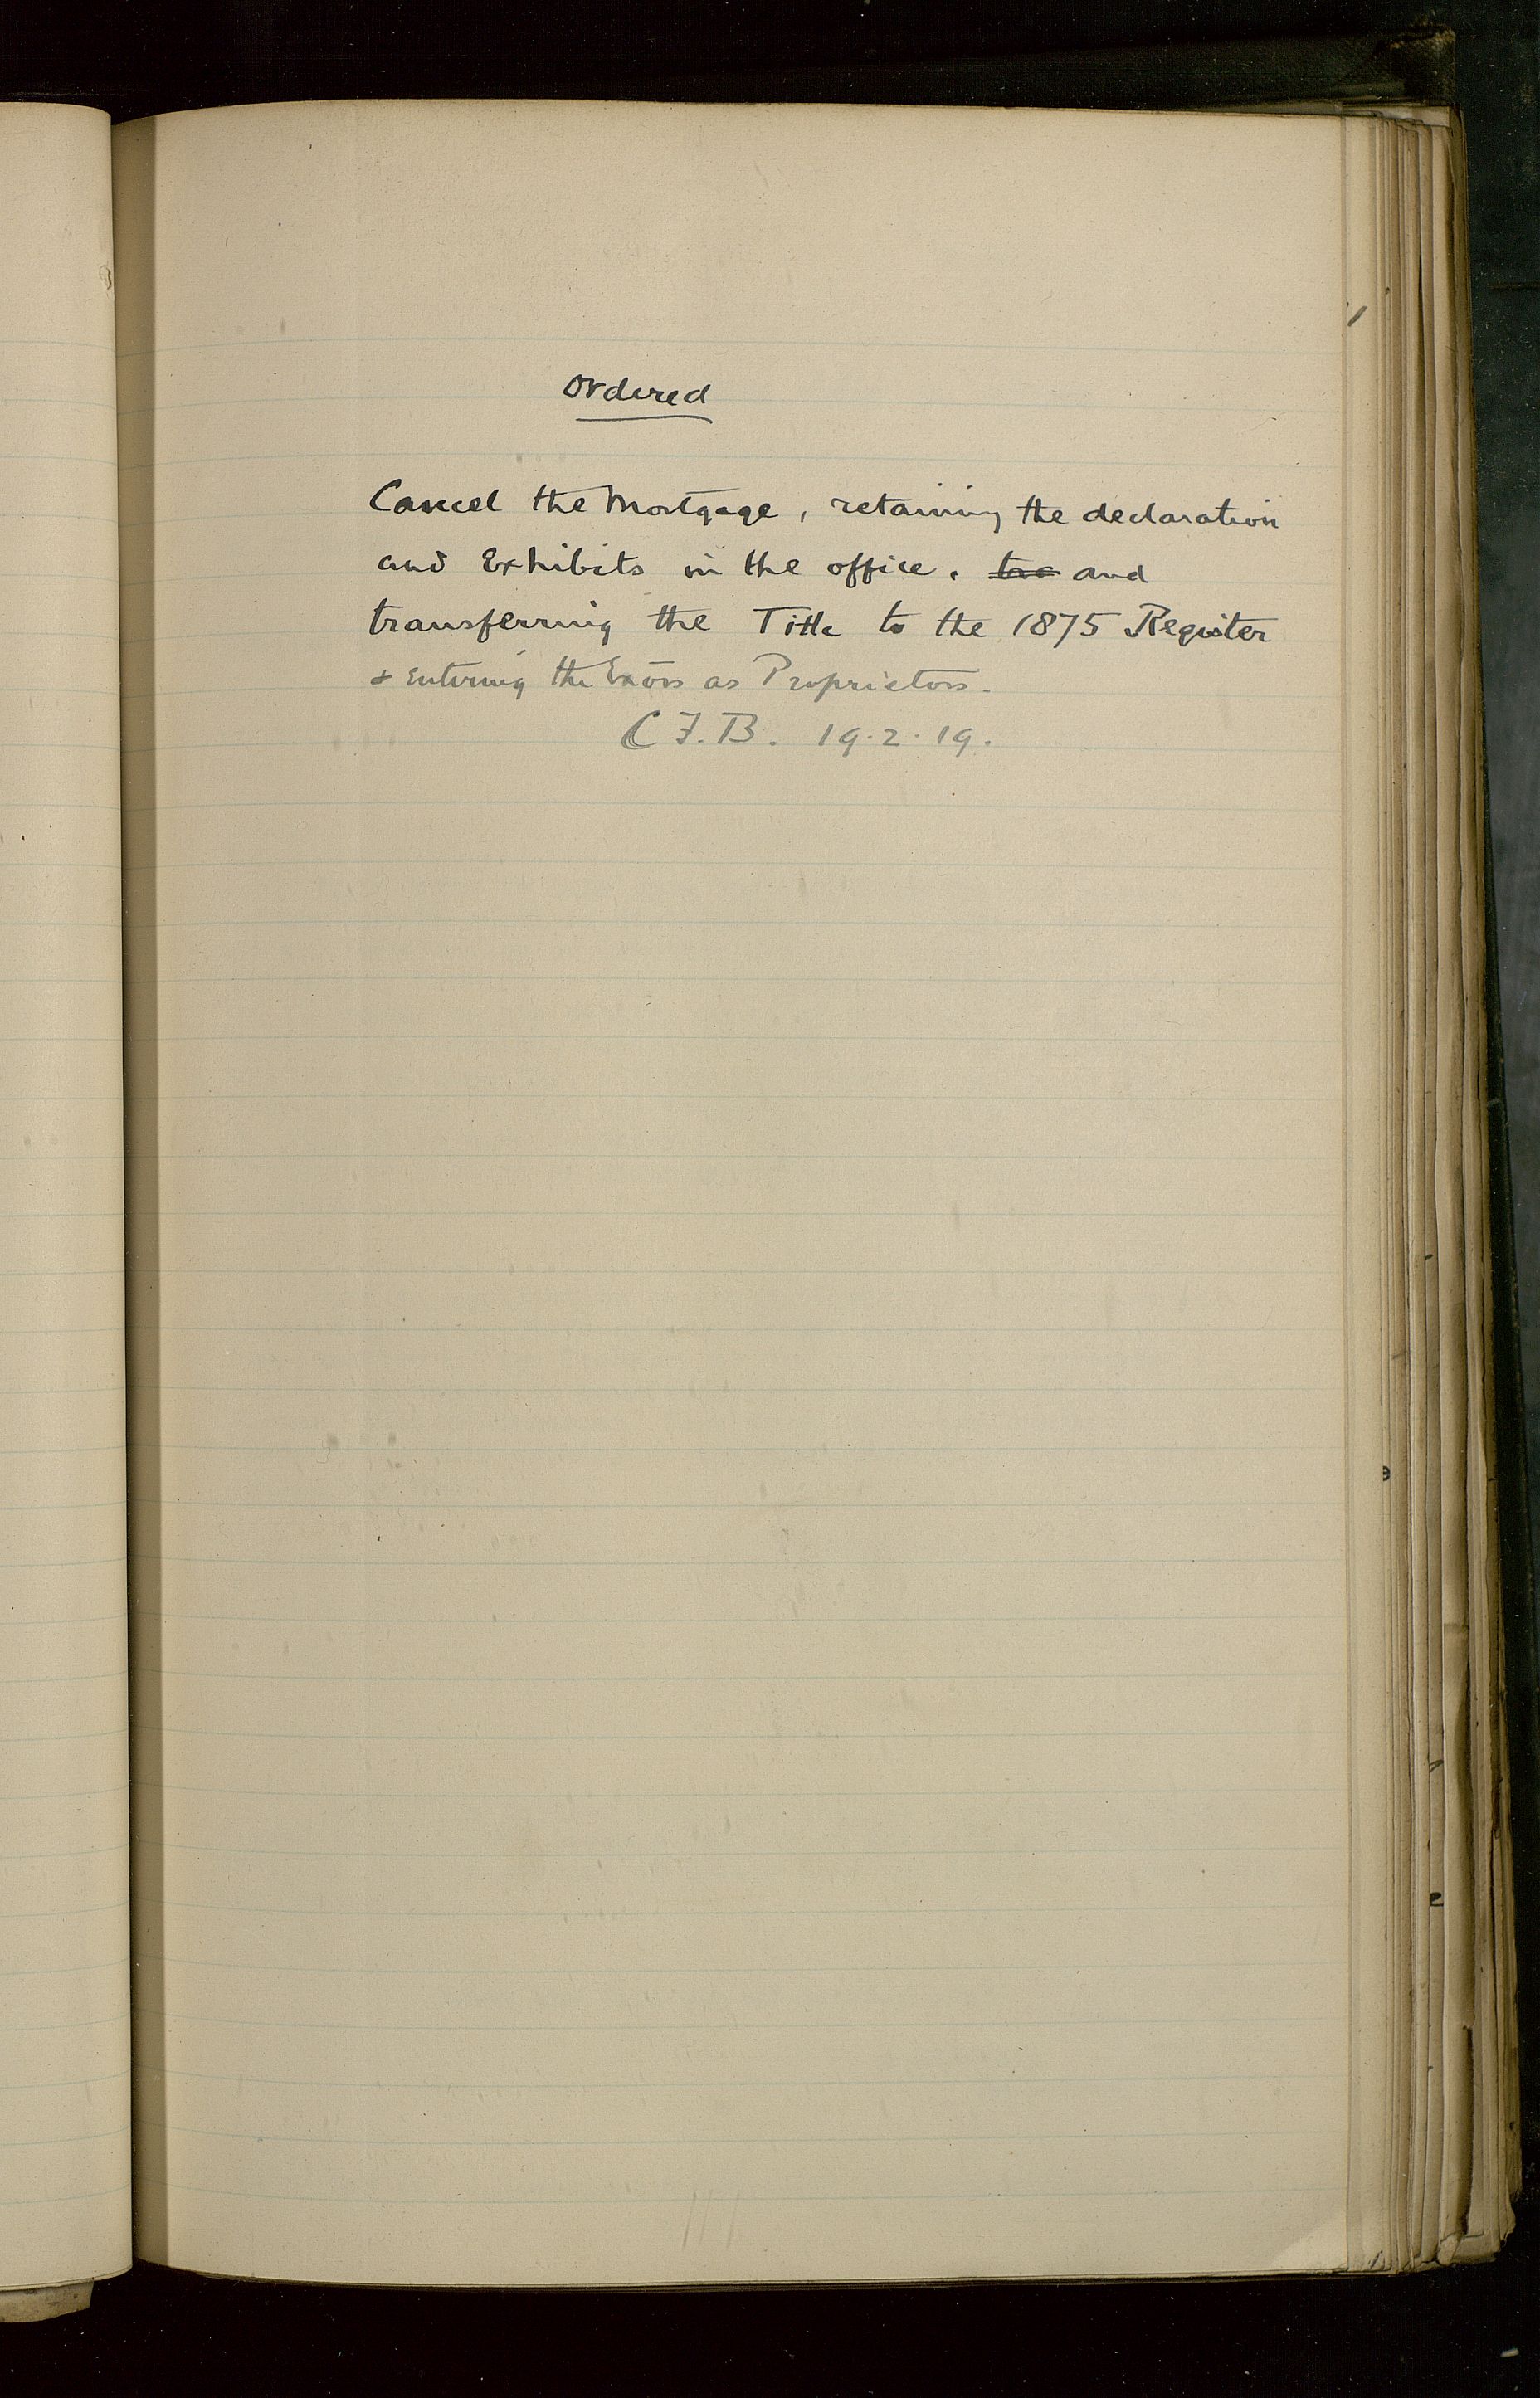 Ordered
Cancel the Mortgage, retaining the declaration
and Exhibits in the office. tra and
transferring the Title to the 1875 Register
& entering the Exōrs as Proprietors.
C F. B. 19.2.19.
111